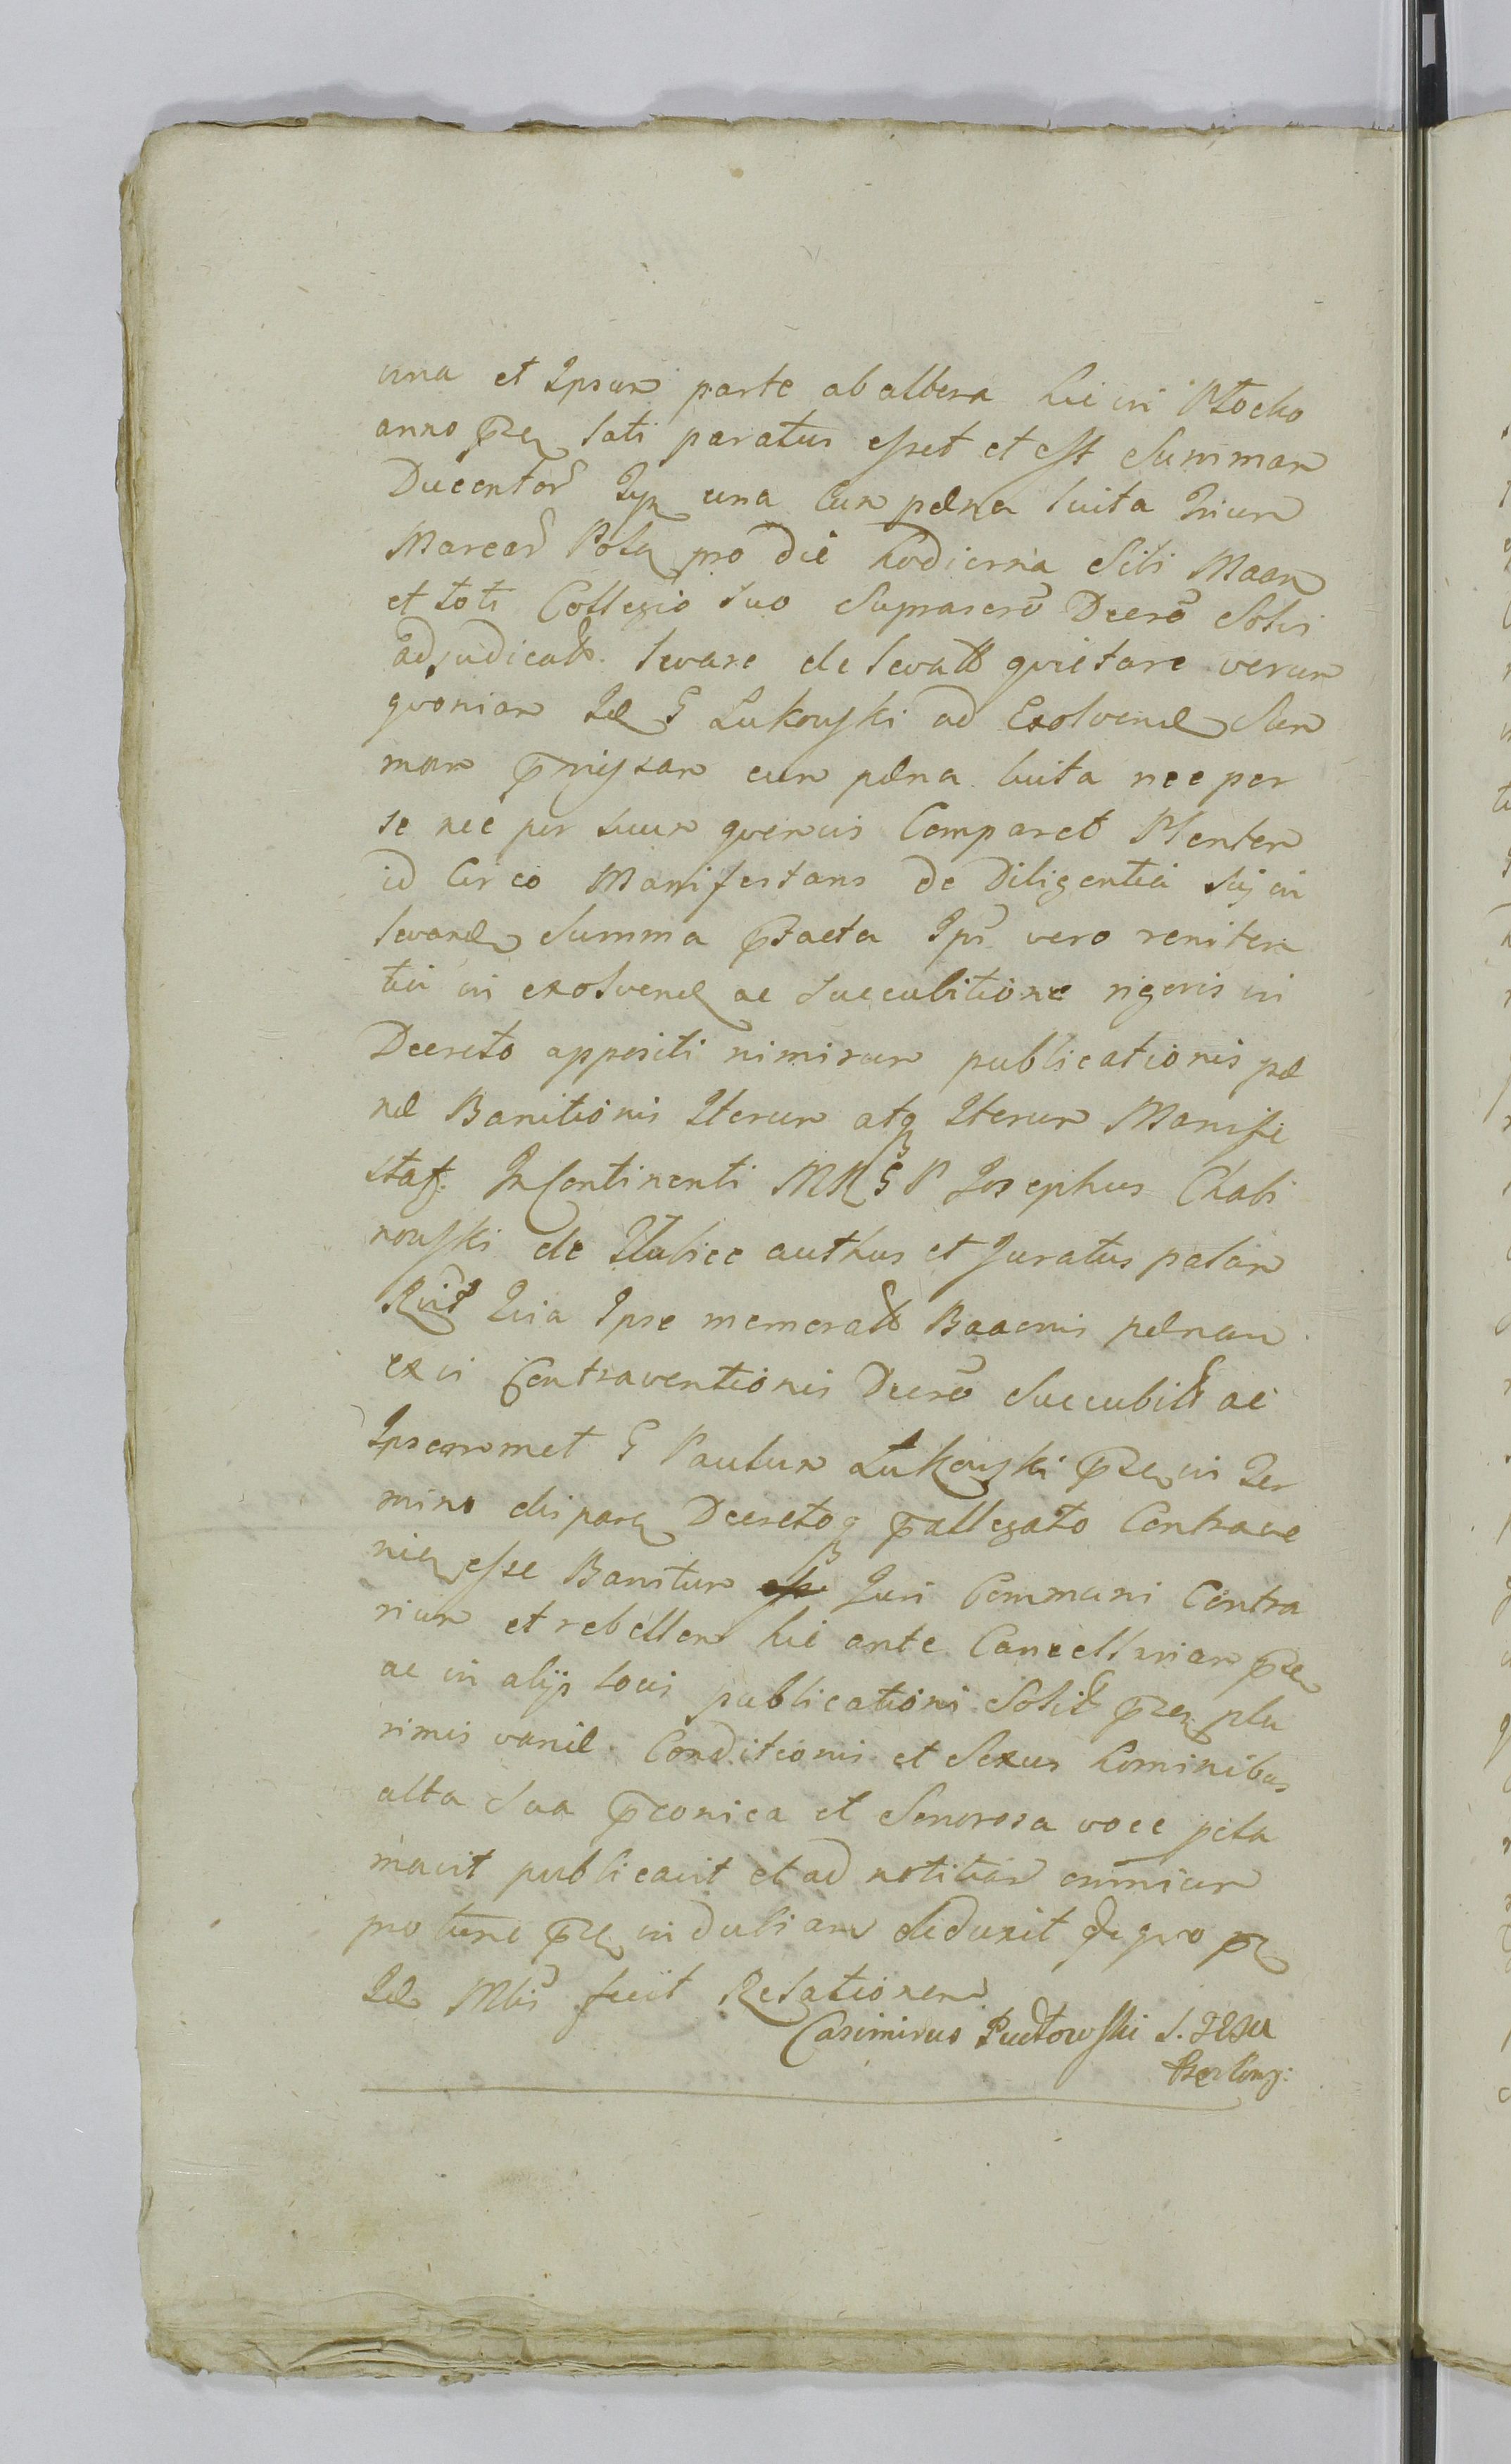 una et Ipsum parte ab altera hic in Płocko
anno pñ lati paratus esset et est Summam
Ducentor una cum pæna luita Trium
Marcar Polq pro die hodierna Sibi Maan
et toti Collegio suo Suprascro Decro Solvi
adjudicatt. levare de levatt quietare verum
quoniam Id G Lukowski ad Exolvend Sum
mam pmissam cum pæna luita nec per
se nec per suum quemvis Comparet Plenten
id Circo Manifestans de Diligentia sui in
levand Summa ptacta Ips vero reniten
tia in exolvend ac succubitione rigoris in
Decreto appositi nimirum publicationis pæ
næ Banitionis Iterum atq Iterum Manife
staf. In Continenti MRGP Josephus Chabi
nowski de Slubice authus et Juratus palam
Rcit Quia Ipse memoratt Baaonis pænam
ex vi Contraventionis Decro Succubitt ac
Ipsummet G Paulum Łukowski pñ in Ter
mino disparq Decretoq pallegato Contrave
nien esse Banitum Juri Communi Contra
rium et rebellem hic ante Cancellariam pñ
ac in alijs locis publicationi Solitt pñ plu
rimis variæ Conditionis et Sexus hominibus
alta sua pconica et Sonorosa voce pcla
mavit publicavit et ad notitiam omnium
pro tunc pñ induliam deduxit de quo
Id Mlis fecit Relationem
Casimirus Pudłowski S. TESu